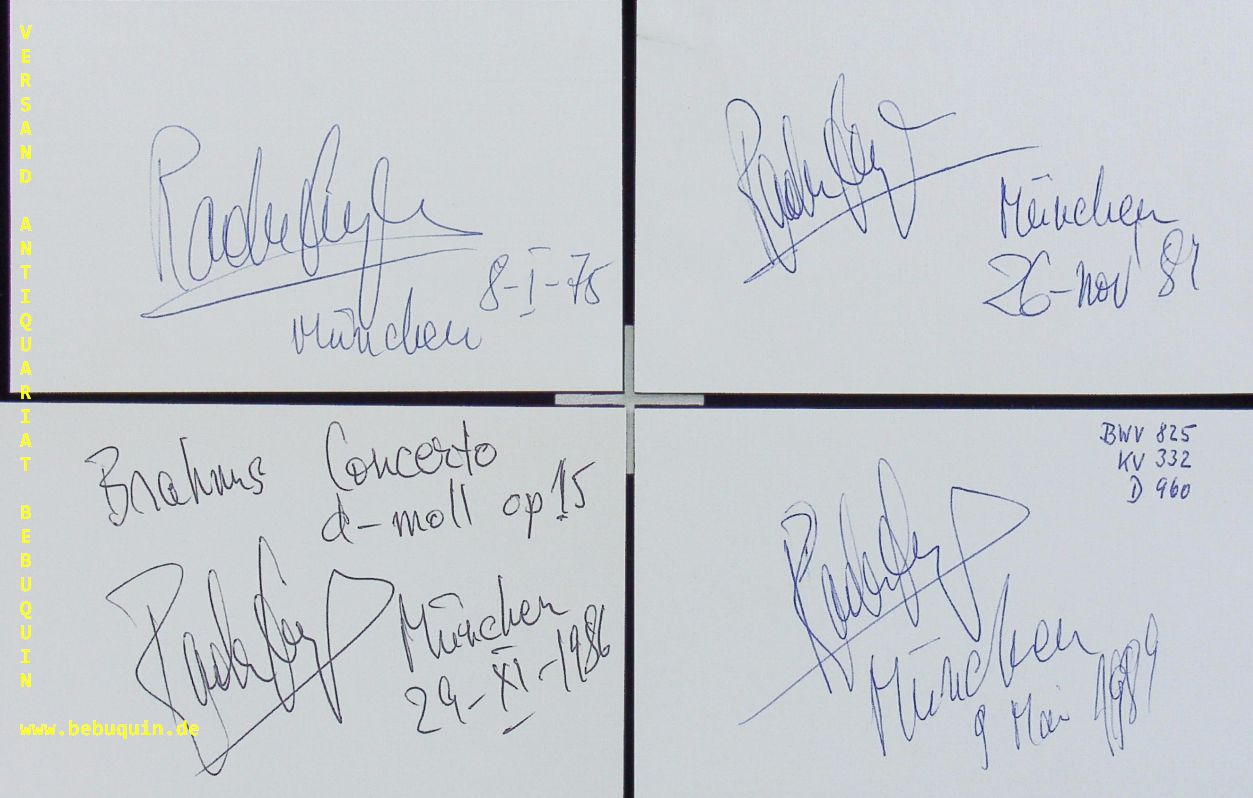 VERSAND ANTIQUARIAT BEBUQUIN
www.bebuquin.de
Radu Lupu
8-I-75
München
Radu Lupu
München
26-nov 81
Brahms Concerto
d-moll op 15
Radu Lupu
München
29-XI-1986
BWV 825
KV 332
D 960
Radu Lupu
München
9 Mai 1989